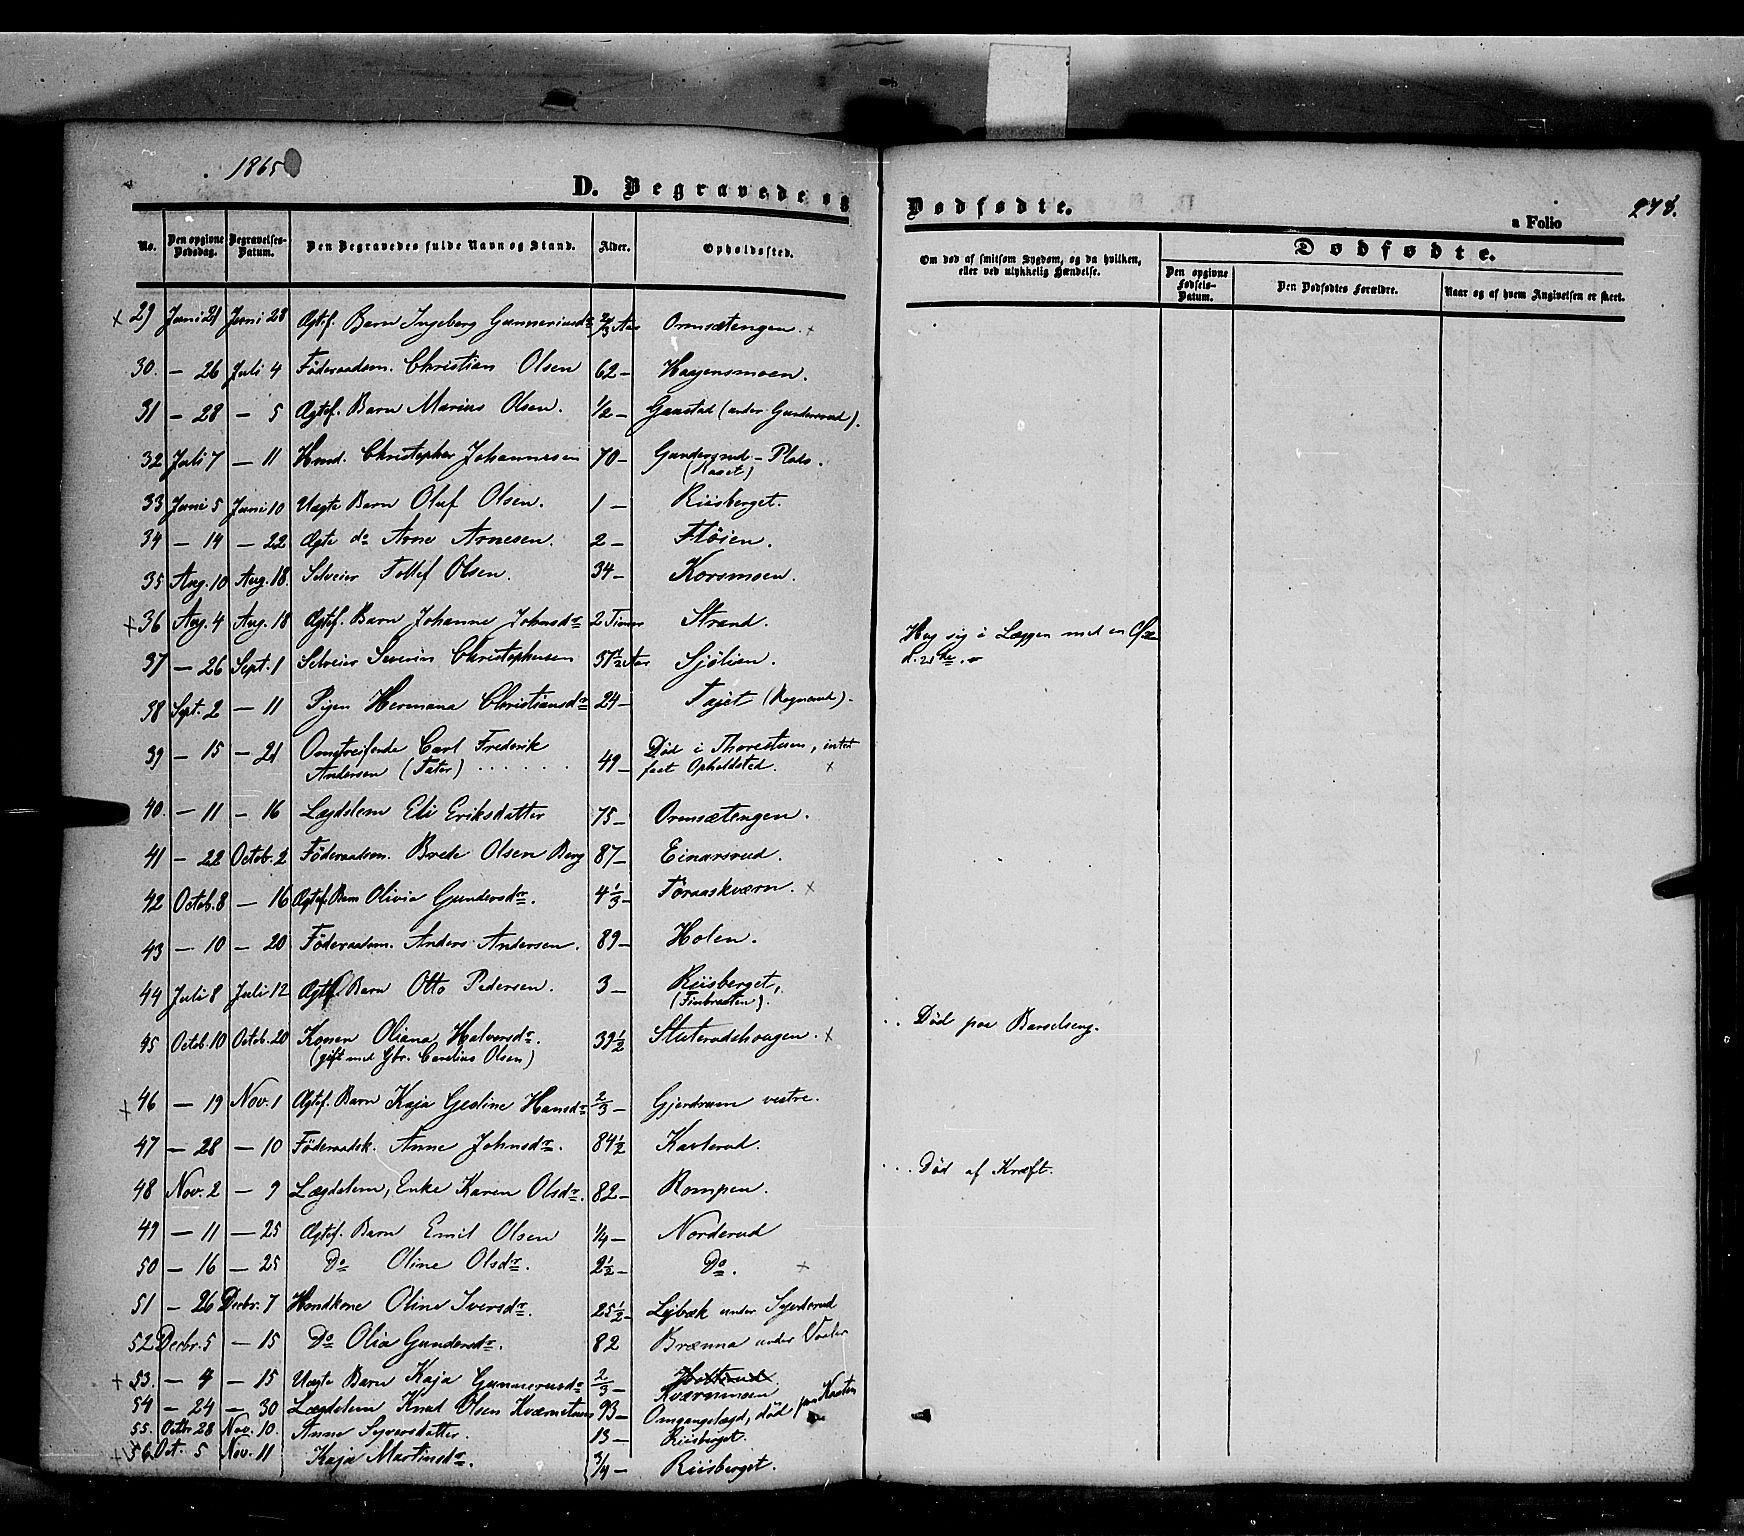 1865
D. Begravede og
Dødfødte.
a Folio
278.
No.
Den opgivne Dødsdag.
Begravelses-Datum.
Den Begravedes fulde Navn og Stand.
Alder.
Opholdssted.
Om død af smitsom Sygdom, og da hvilken, eller ved ulykkelig Hændelse.
Dødfødte.
Den opgivne Fødsels-Datum.
Den Dødfødtes Forældre.
Naar og af hvem Angivelsen er skeet.
x 29 Juni 21 Juni 28 Ægtef. Barn Ingeborg Gunneriusdr 2/3 Aar Ormsætengen. x
30. — 26 Juli 4 Föderaadsm. Christian Olsen 62 — Haagensmoen.
31 — 28 — 5 Ægtef. Barn Marius Olsen. 1/2 — Gaustad (under Gundersrud).
32 Juli 7 — 11 Hmd. Christopher Johannesen 70 — Gundersrud-Plads.
33 Juni 5 Juni 10 Uægte Barn Oluf Olsen. 1 — Riisberget.
34 — 14 — 22 Ægte do Arne Arnesen. 2 — Flöien.
35 Aug. 10 Aug. 18. Selveier Tollef Olsen. 34 — Korsmoen.
x 36 Aug. 4 Aug. 18 Ægtef. Barn Johanne Johnsdr 2 Timer Strand.
37 — 26 Sept. 1 Selveier Severin Christophersen 37 1/2 Aar Sjölien. Hug sig i Læggen med en Øxe
38 Sept. 2 — 11 Pigen Hermana Christiansdr 24 — Fajet (Rognerud).
39 — 15 — 21 Omstreifende Carl Frederik Død i Thorestuen, intet
Andersen (Tater) 49 — fast Opholdsted. x
40. — 11 — 16 Lægdslem Eli Eriksdatter 75 — Ormsætengen.
41 — 22 Octob. 2 Föderaadsm. Brede Olsen Berg 87 — Einarsrud.
42 Octob. 8 — 16 Ægtef. Barn Olivia Gundersdr. 4 1/3 — Foraaskværn. x
43 — 10 — 20 Föderaadsm. Anders Andersen. 89 — Holen.
44 Juli 8 Juli 12 Ægtef. Barn Otto Pedersen. 3 — Riisberget,
(Finbraaten).
45 Octob. 10 Octob. 20 Konen Oliana Halvorsdr. 39 1/2 Sluterudshaugen. x Död paa Barselseng.
(gift med Gbr. Carelius Olsen)
x 46 — 19 Nov. 1 Ægtef. Barn Kaja Gesline Hansdr 2/3 — Gjerdrum vestre.
47 — 28 — 10 Föderaadsk. Anne Johnsdr. 84 1/2 Karterud.
48 Nov. 2 — 9 Lægdslem, Enke Karen Olsdr. 82 — Rompen. Död af Kræft.
49 — 11 — 25 Ægtef. Barn Emil Olsen 1/4 — Norderud
50 — 16 — 25 Do Oline Olsdr. 2 1/2 — Do. x
51 — 26 Decbr. 7 Hmdkone Oline Iversdr. 25 1/2 — Lybæk under
52 Decbr. 5 — 15 Do Olia Gundersdr. 82 Brænna under Vaaler
x 53. — 4 — 15 Uægte Barn Kaja Gunnerusdr 2/3 — Kværnmoen
54 — 24 — 30 Lægdslem Knud Olsen Kværnstuen 93 — Omgangslægd, död paa
55. Octbr. 28 Nov. 10. Anne Syversdatter. 13 — Riisberget.
x 56 Oct. 5 Nov. 11 Kaja Martinsdr. 3/4 — Riisberget.